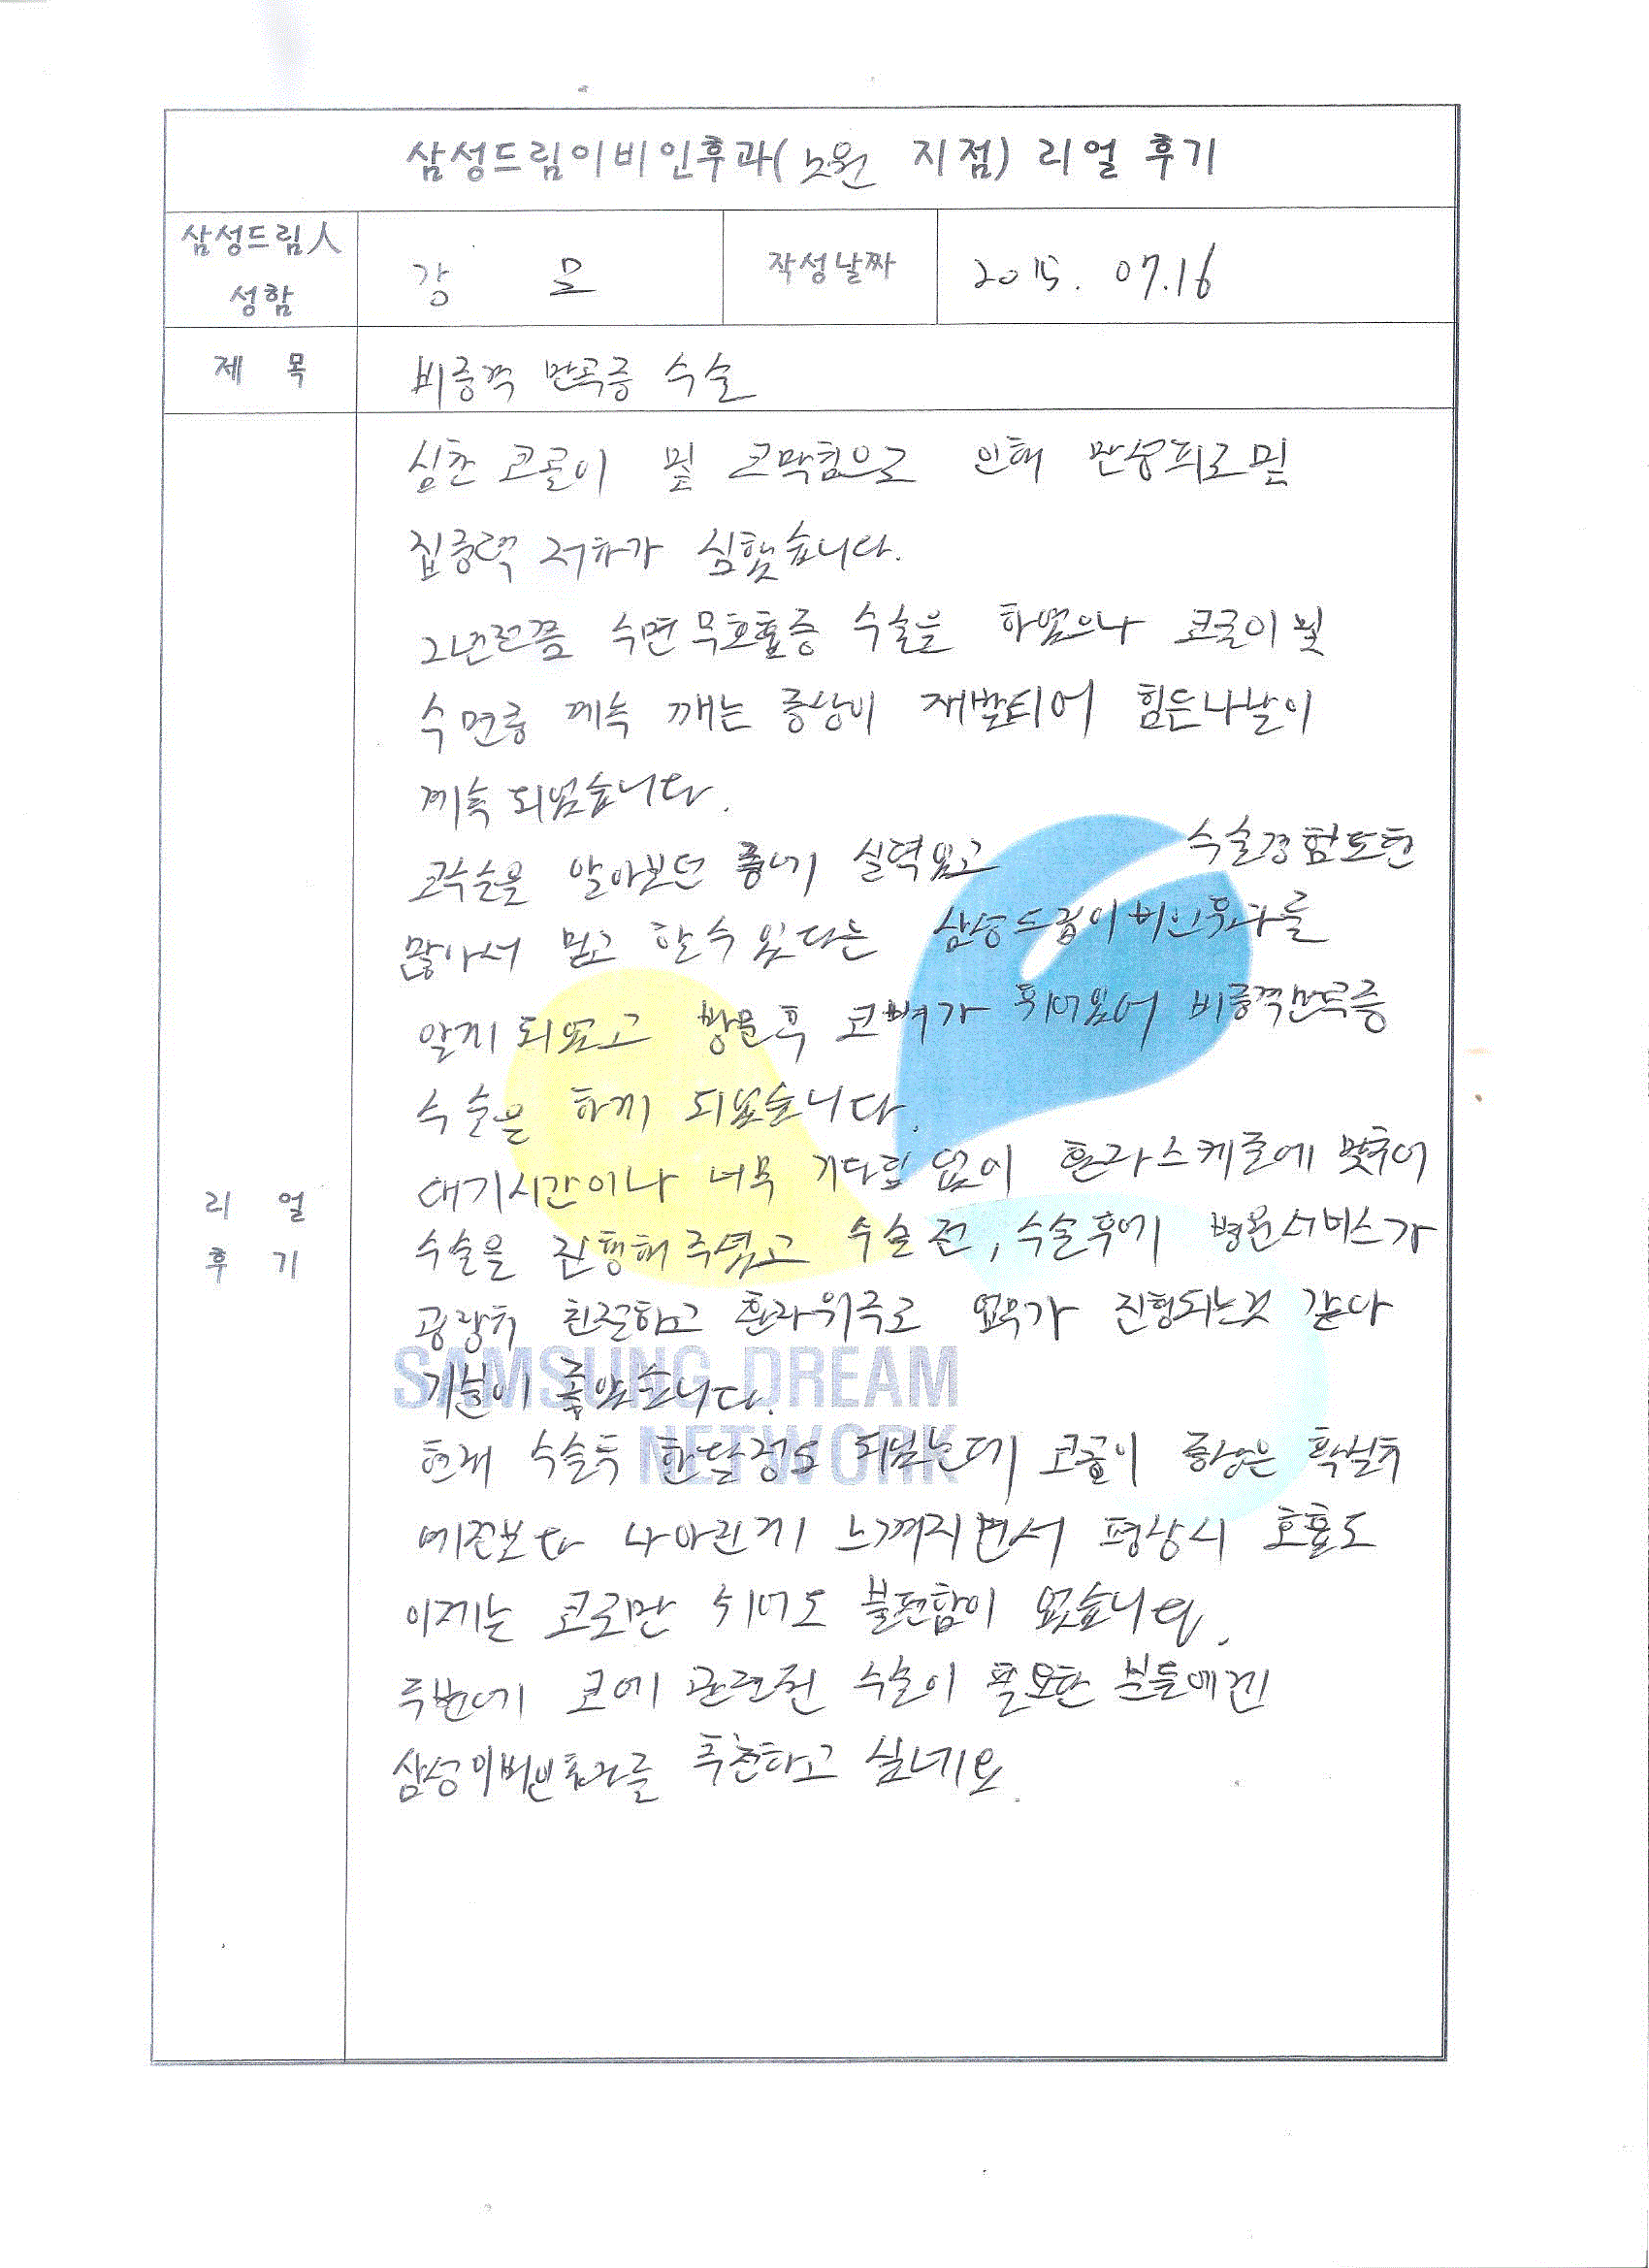 삼성드림이비인후과(노원 지점) 리얼 후기
삼성드림人 성함
강 모
작성날짜
2015. 07.16
제 목
비중격 만곡증 수술
리 얼 후 기
심한 코골이 및 코막힘으로 인해 만성피로및
집중력 저하가 심했습니다.
2년전쯤 수면무호흡증 수술을 하였으나 코골이및
수면중 계속 깨는 증상이 재발되어 힘든나날이
계속 되었습니다.
코수술을 알아보던 중에 실력있고 수술경험또한
많아서 믿고 할수 있다는 삼성드림이비인후과를
알게 되었고 방문후 코벽가 휘어있어 비중격만곡증
수술을 하게 되었습니다.
대기시간이나 너무 기다림 없이 환자스케줄에 맞추어
수술을 진행해 주셨고 수술 전, 수술후에 병원서비스가
굉장히 친절하고 환자위주로 업무가 진행되는것 같다
기분이 좋았습니다.
현재 수술후 한달정도 되었는데 코골이 증상은 확실히
예전보다 나아진게 느껴지면서 평상시 호흡도
이제는 코로만 쉬어도 불편함이 없습니다.
주변에 코에 관련된 수술이 필요한 분들에겐
삼성이비인후과를 추천하고 싶네요.
SAMSUNG DREAM
NETWORK